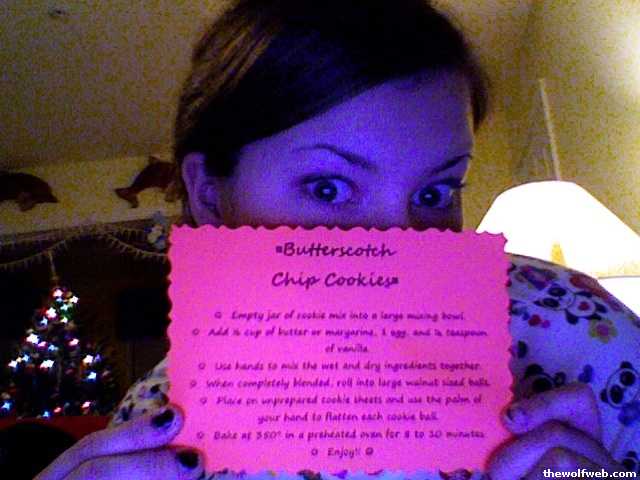 Butterscotch
Chip Cookies
Empty jar of cookie mix into a large mixing bowl.
Add ½ cup of butter or margarine, 1 egg, and ¼ teaspoon
of vanilla.
Use hands to mix the wet and dry ingredients together.
When completely blended, roll into large walnut sized balls.
Place on unprepared cookie sheets and use the palm of
your hand to flatten each cookie ball.
Bake at 350° in a preheated oven for 8 to 10 minutes.
Enjoy!!
thewolfweb.com